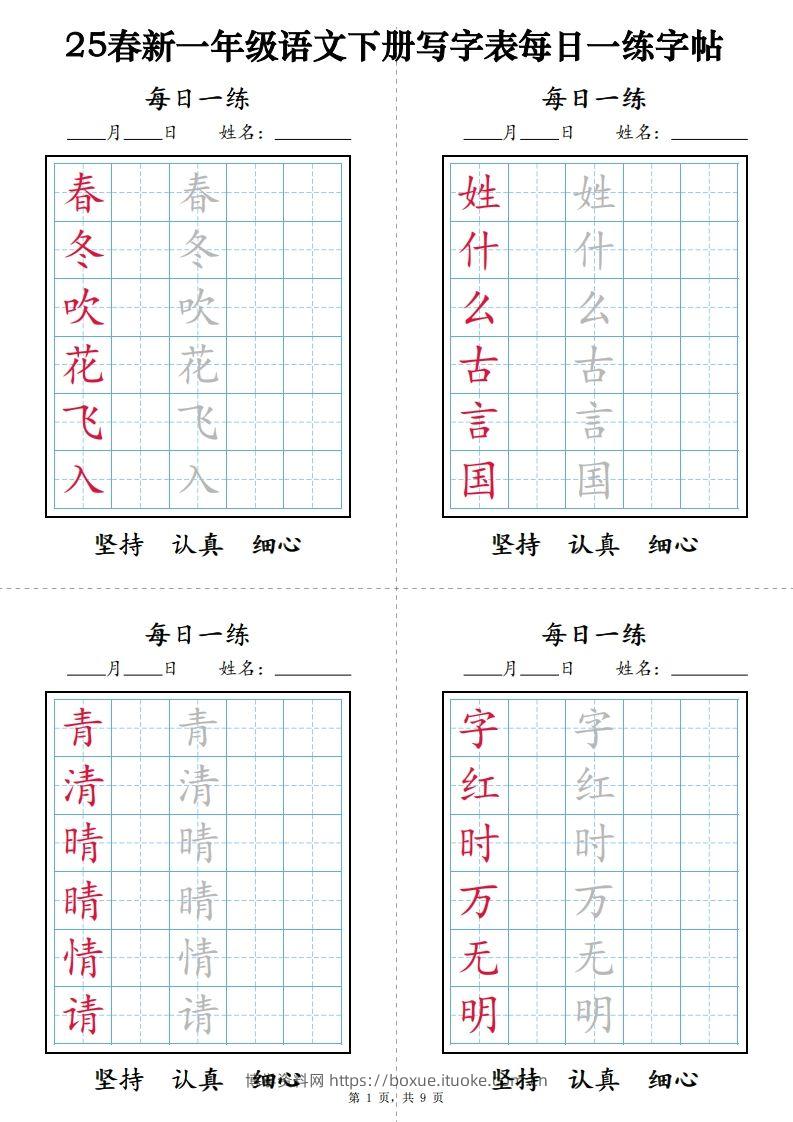 25春新一年级语文下册写字表每日一练字帖
每日一练
____月____日 姓名：________
春 春
冬 冬
吹 吹
花 花
飞 飞
入 入
坚持 认真 细心
每日一练
____月____日 姓名：________
姓 姓
什 什
么 么
古 古
言 言
国 国
坚持 认真 细心
每日一练
____月____日 姓名：________
青 青
清 清
晴 晴
睛 睛
情 情
请 请
坚持 认真 细心
每日一练
____月____日 姓名：________
字 字
红 红
时 时
万 万
无 无
明 明
坚持 认真 细心
博学资料网 https://boxue.ituoke.com.cn
第 1 页，共 9 页